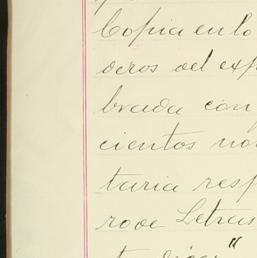 Copia en lo
deros del exp
brada con
cientos no
taria resp
ro de Letras